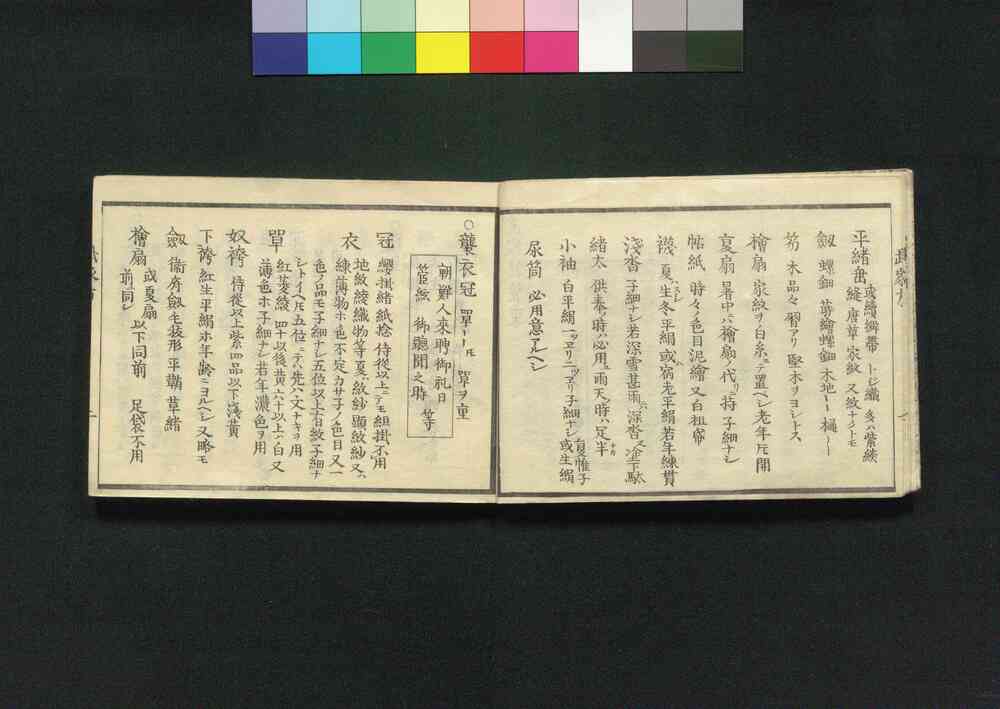 平緒垂 或續攤帶 トジ織 多ハ紫緂
縫 唐草 家紋 又紋ナシトモ
劔 螺鈿 蒔繪螺鈿 木地〻 樋〻
笏 木品々 習アリ 堅木ヲヨシトス
檜扇 家紋ヲ白糸ニテ置ヘシ老年ハ閉
夏扇 暑中ハ檜扇ノ代ニ持子細ナシ
帖紙 時々ノ色目泥繪 又白粗席
襪 夏ハスヽシ生冬平絹 或宿老平絹若年練貫
淺沓 子細ナシ若深雪甚雨ハ深沓又塗下駄
緒太 供奉ノ時ハ必用ユ雨天ノ時ハ足半
小袖 白平絹一ツヱリ二ツヱリ子細ナシ 夏帷子 或生絹
尿筒 必用意アルヘシ
○襲衣冠 單ヽヽ𪜈 單ヲ重
朝鮮人來聘御礼日
管絃 御聽聞之時 等
冠 纓掛緒紙捻 侍從以上ニテモ組掛不用
衣 地敷綾織物等夏ハ紋紗顕紋紗又ハ
練薄物ホ色不定カサ子ノ色目又一
色ノ品モ子細ナシ五位以上有紋子細ナ
シトイヘ𪜈五位ニテ先ハ文ナキヲ用
單 紅菱綾 四十以後黄六十以上ハ白又
薄色ホ子細ナシ若年濃色ヲ用
奴袴 侍從以上紫四品以下淺黄
下袴 紅生平絹ホ年齢ニヨルヘシ又略モ
劔 衞府劔毛拔形 平鞘 草緒
檜扇 或夏扇 以下同前 足袋不用
前ニ同シ